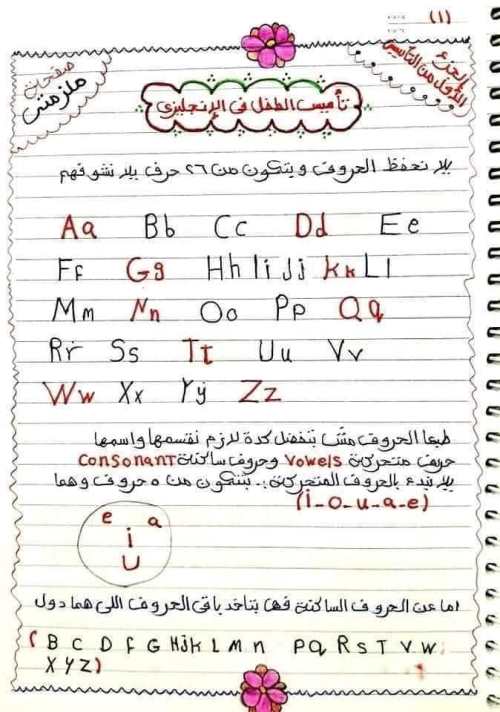 (1)
الجزء
الأول من التأسيس
صفحات
ملزمتي
تأسيس الطفل في الإنجليزي
يلا نحفظ الحروف ويتكون من ٢٦ حرف يلا نشوفهم
Aa Bb Cc Dd Ee
Ff Gg Hh Ii Jj Kk Ll
Mm Nn Oo Pp Qq
Rr Ss Tt Uu Vv
Ww Xx Yy Zz
طبعا الحروف مش بتفضل كدة لازم نقسمها واسمها
حروف متحركة Vowels وحروف ساكنة Consonant
يلا نبدء بالحروف المتحركة :. بتتكون من ٥ حروف وهما
(i-o-u-a-e)
e a
i
U
اما عن الحروف الساكنة فها بتاخد باقى الحروف اللى هما دول
( B C D F G H j k L M n P q R S T V W
X Y Z )